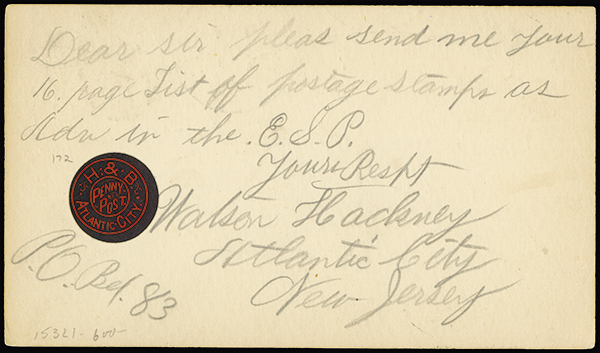 Dear sir pleas send me your
16. page List of postage stamps as
Adv in the E.S.P.
Yours Respt
172
H. & B.
PENNY
POST.
ATLANTIC CITY.
Watson Hackney
Atlantic City
P.O. Bx. 83
New Jersey
15321-600